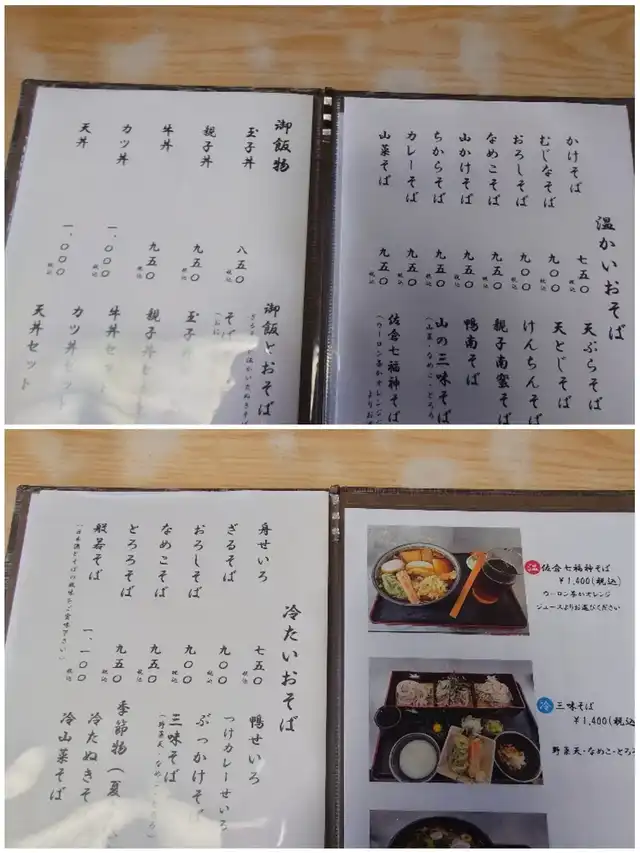 温かいおそば
かけそば 七五〇 税込
むじなそば 九〇〇 税込
おろしそば 九〇〇 税込
なめこそば 九五〇 税込
山かけそば 九五〇 税込
ちからそば 九五〇 税込
カレーそば 九五〇 税込
山菜そば 九五〇 税込
天ぷらそば
天とじそば
けんちんそば
親子南蛮そば
鴨南そば
山の三味そば
(山菜・なめこ・とろろ)
佐倉七福神そば
(ウーロン茶かオレンジ
よりお
御飯物
玉子丼 八五〇 税込
親子丼 九五〇 税込
牛丼 九五〇 税込
カツ丼 一、〇〇〇 税込
天丼 一、〇〇〇 税込
御飯とおそば
玉子丼
親子丼セット
牛丼セット
カツ丼セット
天丼セット
冷たいおそば
舟せいろ 七五〇 税込
ざるそば 九〇〇 税込
おろしそば 九〇〇 税込
なめこそば 九五〇 税込
とろろそば 九五〇 税込
般若そば 一、一〇〇 税込
(日本酒とそばの風味をご賞味下さい)
鴨せいろ
つけカレーせいろ
ぶっかけそ
三味そば
(野菜天・なめこ・とろろ)
季節物(夏
冷たぬきそ
冷山菜そば
温 佐倉七福神そば
¥1,400(税込)
ウーロン茶かオレンジ
ジュースよりお選びください
冷 三味そば
¥1,400(税込
野菜天・なめこ・とろ